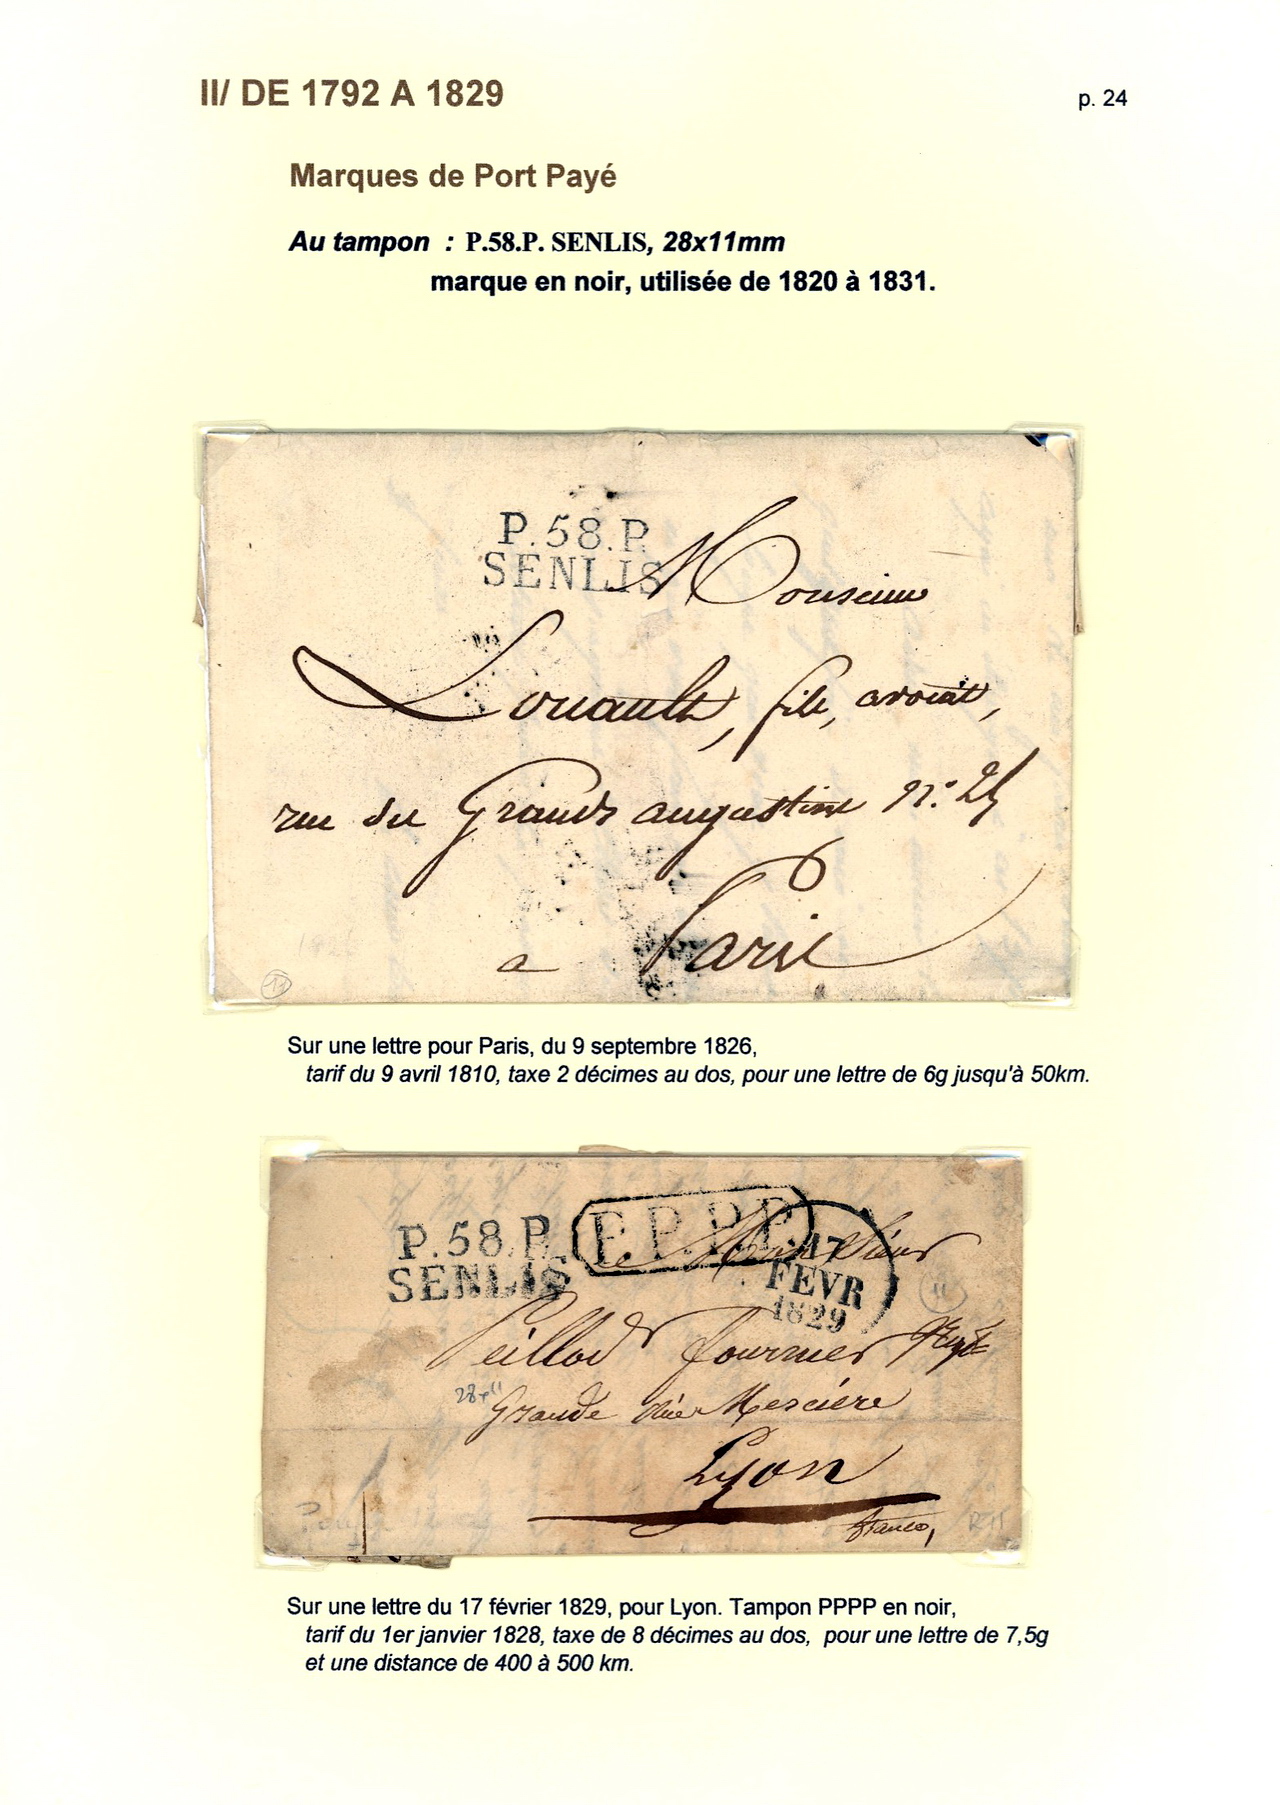 II/ DE 1792 A 1829
p. 24
Marques de Port Payé
Au tampon : P.58.P. SENLIS, 28x11mm
marque en noir, utilisée de 1820 à 1831.
P.58.P.
SENLIS
Monsieur
Louault, fils, avocat,
rue des Grands augustins n.° 25
a Paris
Sur une lettre pour Paris, du 9 septembre 1826,
tarif du 9 avril 1810, taxe 2 décimes au dos, pour une lettre de 6g jusqu'à 50km.
P.58.P.
SENLIS
P.P.P.P.
17
FEVR
1829
Monsieur
Peillod fournier
Grande Rue Merciére
Lyon
franco,
Sur une lettre du 17 février 1829, pour Lyon. Tampon PPPP en noir,
tarif du 1er janvier 1828, taxe de 8 décimes au dos, pour une lettre de 7,5g
et une distance de 400 à 500 km.